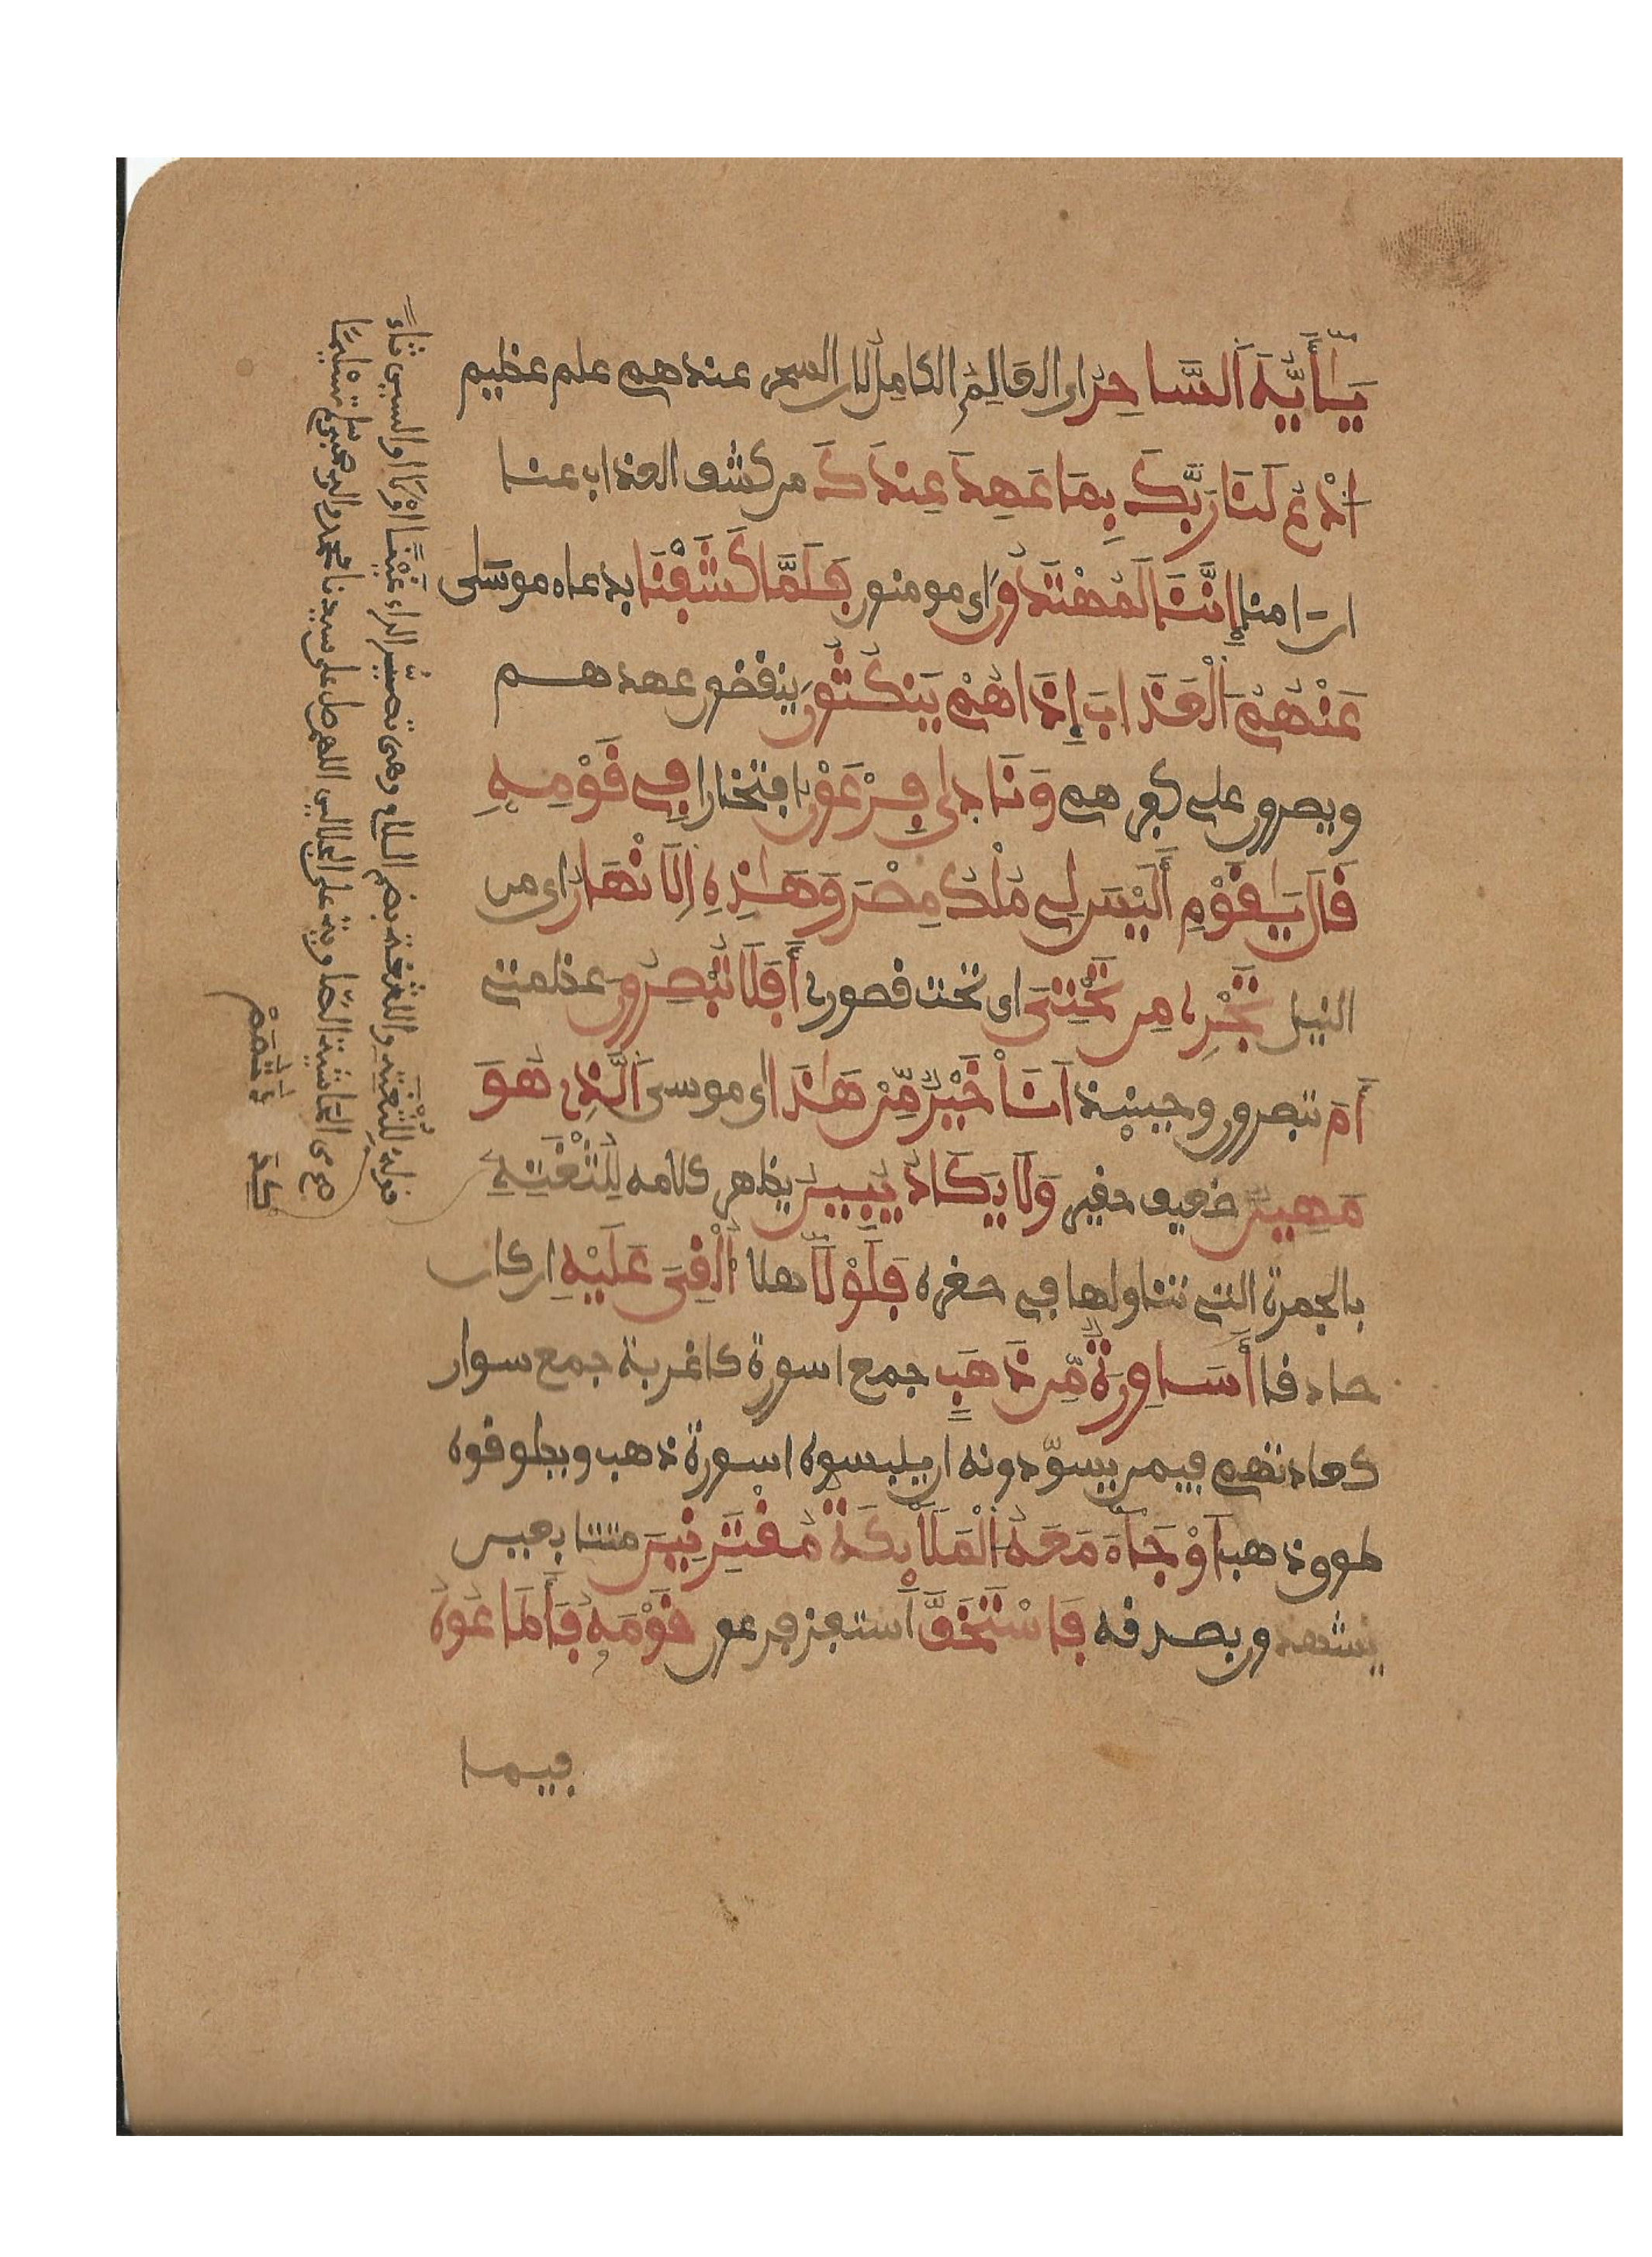 يَٰأَيُّهَ اَلسَّاحِرُ اى العَالِمُ الكامِلُ لان السحر عندهم علم عظيم
اَدْعُ لَنَا رَبَّكَ بِمَا عَهِدَ عِندَكَ من كشف العذاب عنا
ان ءامنا إِنَّنَا لَمُهْتَدُونَ اى مومنون فَلَمَّا كَشَفْنَا بدعاء موسى
عَنْهُمُ اَلْعَذَابَ إِذَا هُمْ يَنكُثُونَ ينقضون عهدهم
ويصرون على كفرهم وَنَادىٰ فِرْعَوْنُ افتخارا فِے قَوْمِهِ
قَالَ يَٰقَوْمِ أَلَيْسَ لِے مُلْكُ مِصْرَ وَهَٰذِهِ اِلَانْهَٰرُ اى من
النيل تَجْرِے مِن تَحْتِىَ اى تحت قصورى أَفَلَا تُبْصِرُونَ عظمتى
أَمَ تبصرون وحينئذ اَنَا خَيْرٌ مِّنْ هَٰذَا اى موسى اَلَّذِے هُوَ
مَهِينٌ ضعيف حقير وَلَا يَكَادُ يُبِينُ يظهر كلامه لِلُثْغَتِهِ
بالجمرة التى تناولها فى صغره فَلَوْلَا هلا أُلْقِىَ عَلَيْهِ ان كان
صادقا أَسَٰوِرَةٌ مِّن ذَهَبٍ جمع اسورة كاغربة جمع سوار
كعادتهم فيمن يسوّدونه ان يلبسوه اسورة ذهب ويطوقوه
طوق ذهب اَوْ جَآءَ مَعَهُ اُلْمَلَٰٓئِكَةُ مُقْتَرِنِينَ متتابعين
يشهدون بصدقه فَاسْتَخَفَّ استفز فرعون قَوْمَهُ فَأَطَاعُوهُ
فيما
قوله لِلُثْغَتِهِ واللثغة بضم اللام وهى تصيّر الراء غَيْنًا اوْ لَامًا او السين ثاءً
من حاشية الصاوى على الجلالين اللهم صل على سيدنا محمد واله وصحبه وسلم تسليمًا